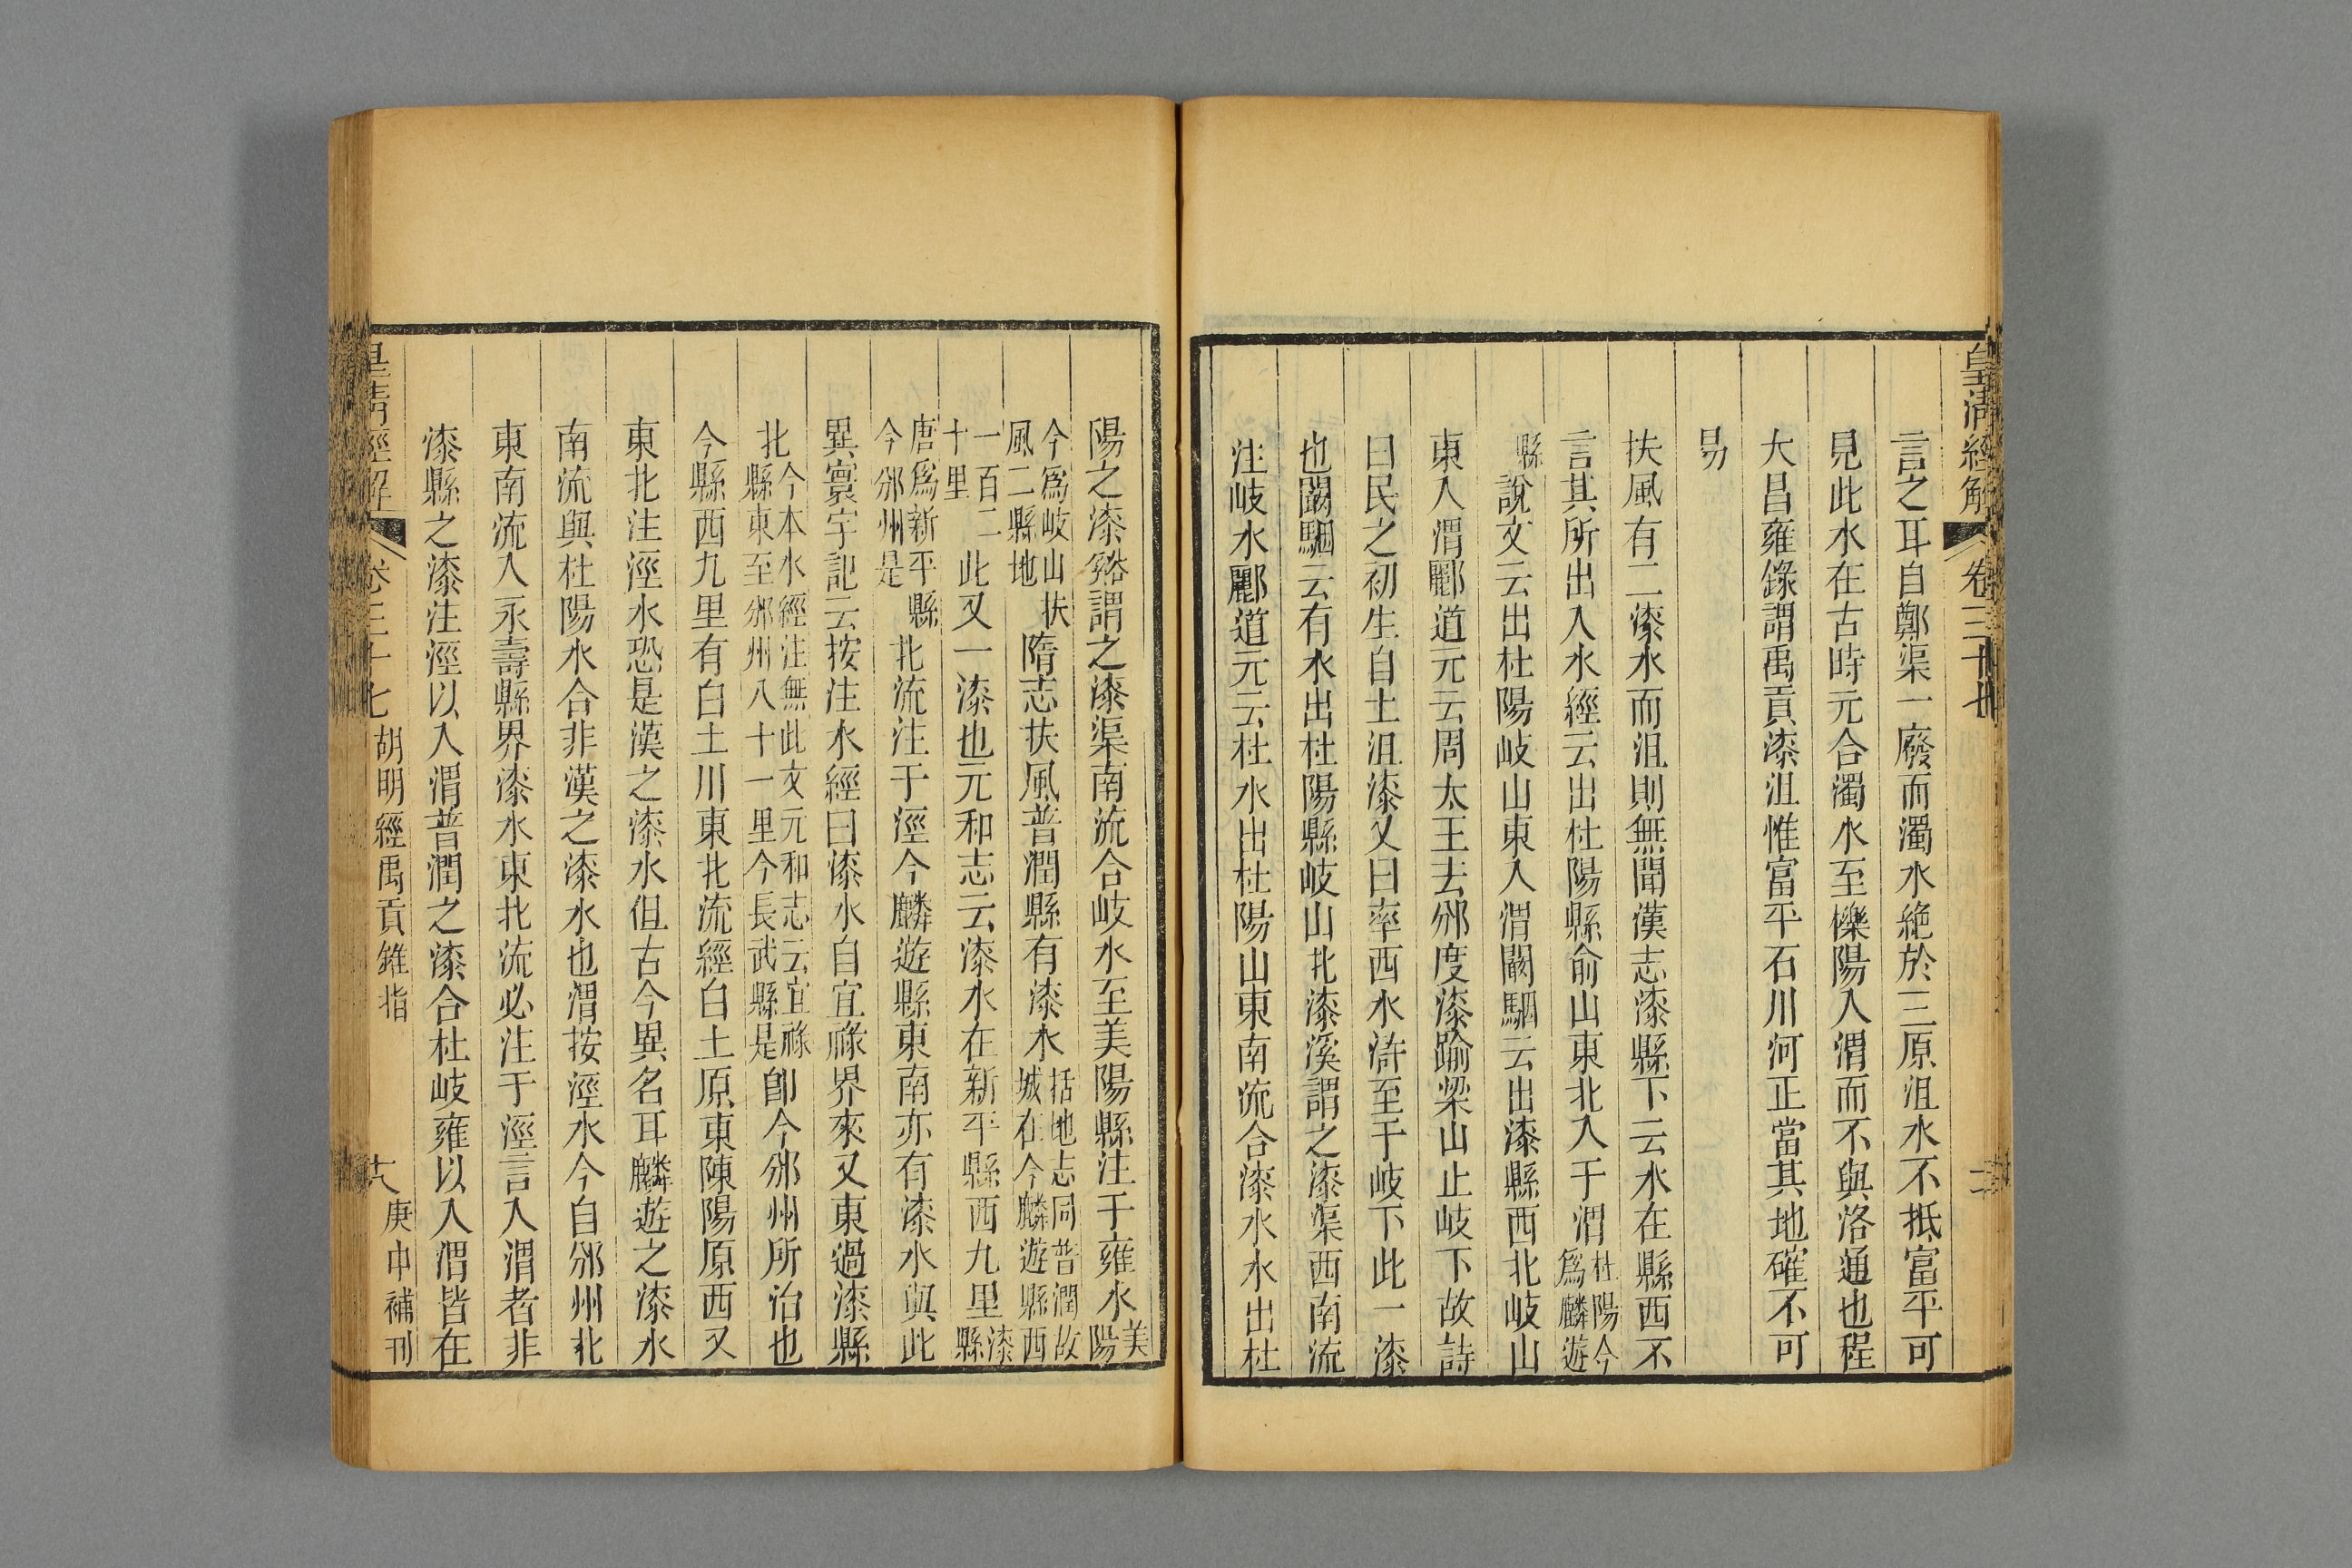 皇清經解 卷三十七
言之耳自鄭渠一廢而濁水絶於三原沮水不抵富平可
見此水在古時元合濁水至櫟陽入渭而不與洛通也程
大昌雍錄謂禹貢漆沮惟富平石川河正當其地確不可
易
扶風有二漆水而沮則無聞漢志漆縣下云水在縣西不
言其所出入水經云出杜陽縣俞山東北入于渭杜陽今爲麟遊
縣說文云出杜陽岐山東入渭闞駰云出漆縣西北岐山
東入渭酈道元云周太王去邠度漆踰梁山止岐下故詩
曰民之初生自土沮漆又曰率西水滸至于岐下此一漆
也闞駰云有水出杜陽縣岐山北漆溪謂之漆渠西南流
注岐水酈道元云杜水出杜陽山東南流合漆水水出杜
陽之漆谿謂之漆渠南流合岐水至美陽縣注于雍水美陽
今爲岐山扶風二縣地隋志扶風普潤縣有漆水括地志同普潤故城在今麟遊縣西
一百二十里此又一漆也元和志云漆水在新平縣西九里漆縣
唐爲新平縣今邠州是北流注于涇今麟遊縣東南亦有漆水與此
異寰宇記云按注水經曰漆水自宜祿界來又東過漆縣
北今本水經注無此文元和志云宜祿縣東至邠州八十一里今長武縣是卽今邠州所治也
今縣西九里有白土川東北流經白土原東陳陽原西又
東北注涇水恐是漢之漆水但古今異名耳麟遊之漆水
南流與杜陽水合非漢之漆水也渭按涇水今自邠州北
東南流入永壽縣界漆水東北流必注于涇言入渭者非
漆縣之漆注涇以入渭普潤之漆合杜岐雍以入渭皆在
皇清經解 卷三十七 胡明經禹貢錐指 六 庚申補刊